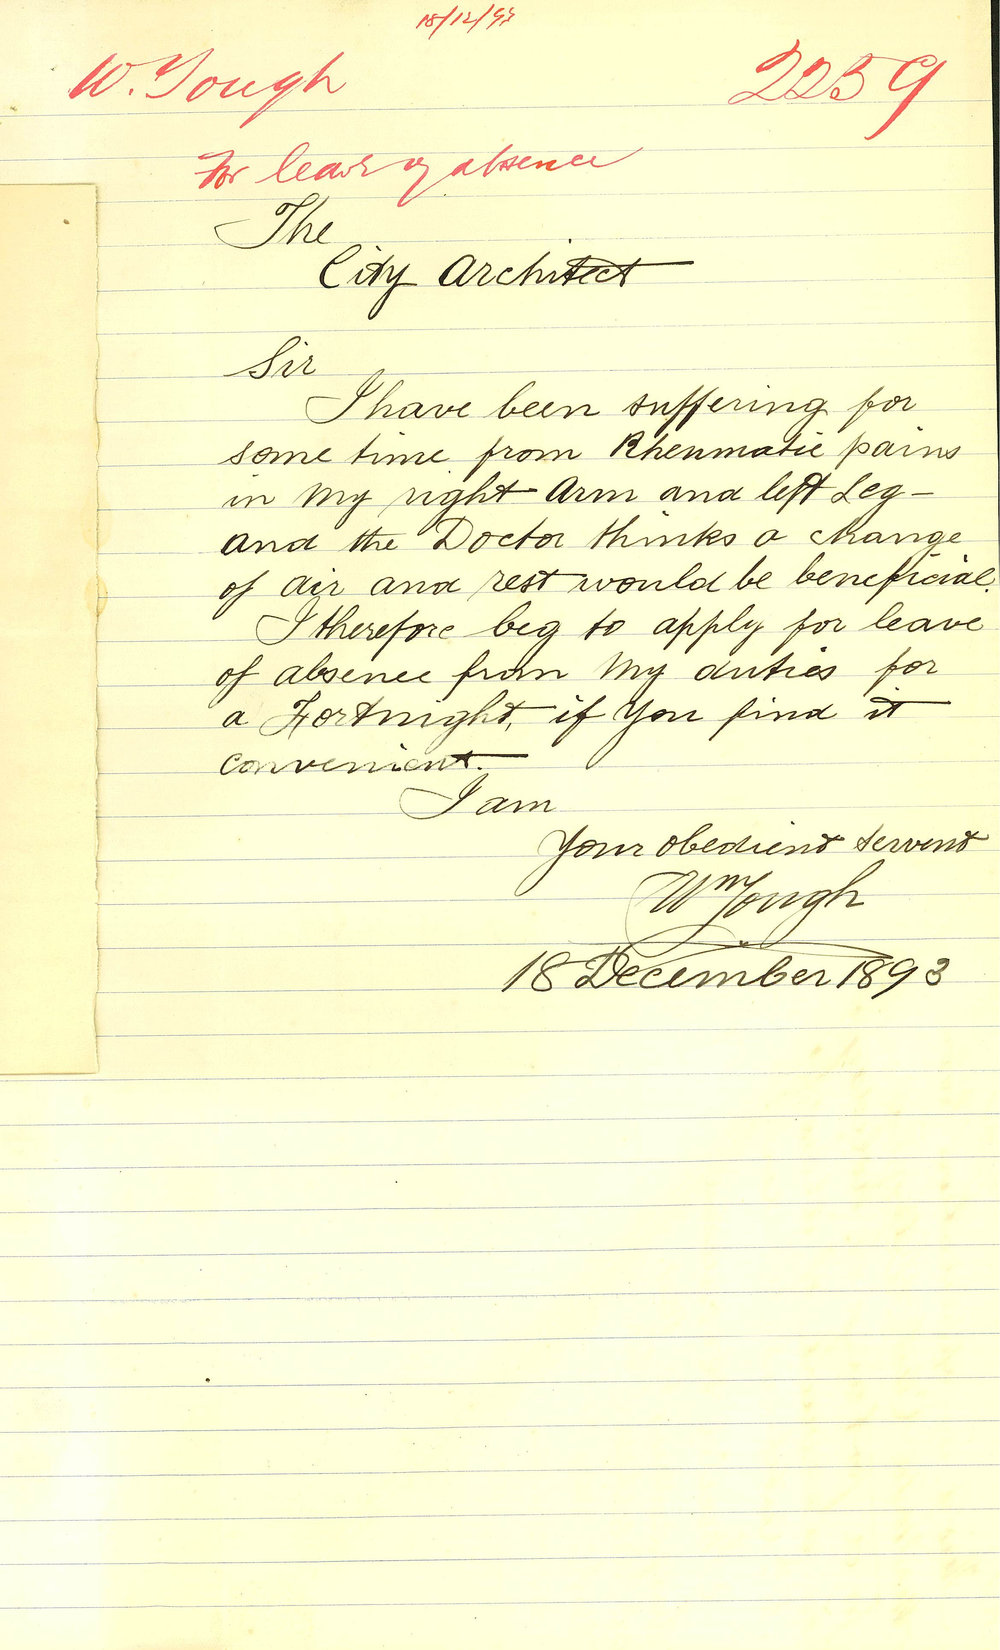 18/12/93
W. Tough 2259
For leave of absence
The
City Architect
Sir
I have been suffering for
some time from Rheumatic pains
in my right Arm and left Leg -
and the Doctor thinks a change
of air and rest would be beneficial.
I therefore beg to apply for leave
of absence from my duties for
a Fortnight, if you find it
convenient.
I am
Your obedient servent
Wm Tough
18 December 1893